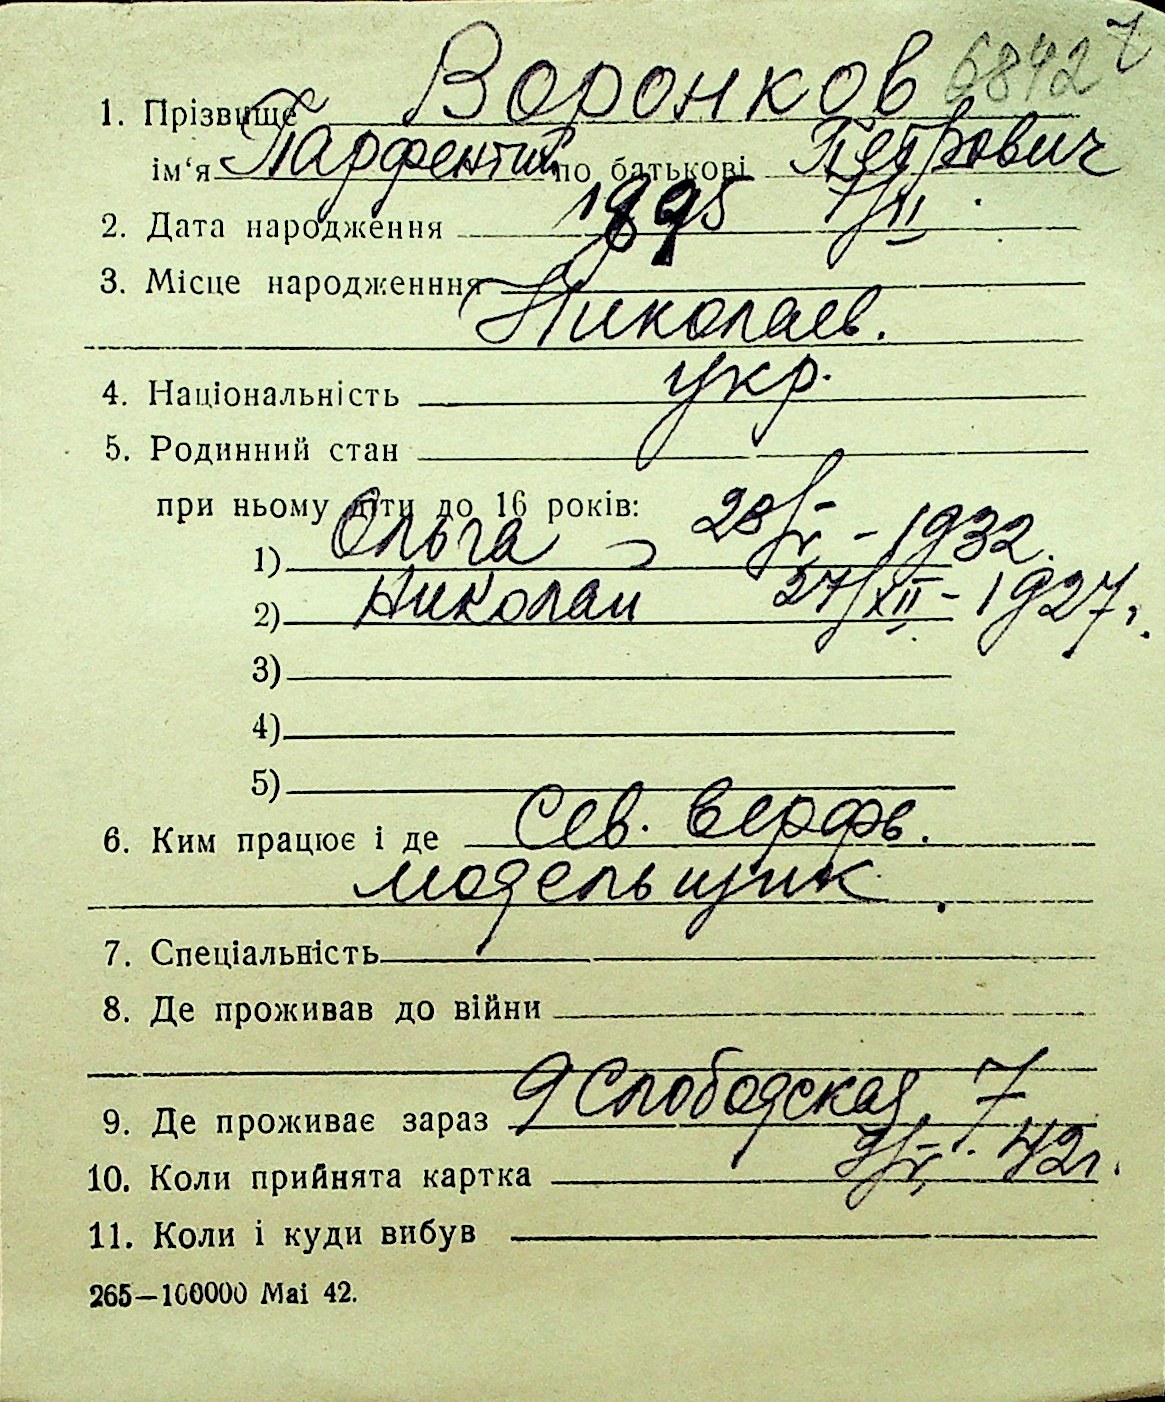 6842 7
1. Прізвище Воронков
ім‘я Парфентий по батькові Петрович
2. Дата народження 1895 7/II.
3. Місце народженння
Николаев.
4. Національність укр.
5. Родинний стан
при ньому діти до 16 років:
1) Ольга 28/V - 1932.
2) Николай 27/XII - 1927г.
3)
4)
5)
6. Ким працює і де Сев. верфь.
модельщик.
7. Спеціальність
8. Де проживав до війни
9. Де проживає зараз 9 Слободская, 7
10. Коли прийнята картка 9/V. 42г.
11. Коли і куди вибув
265—100000 Mai 42.